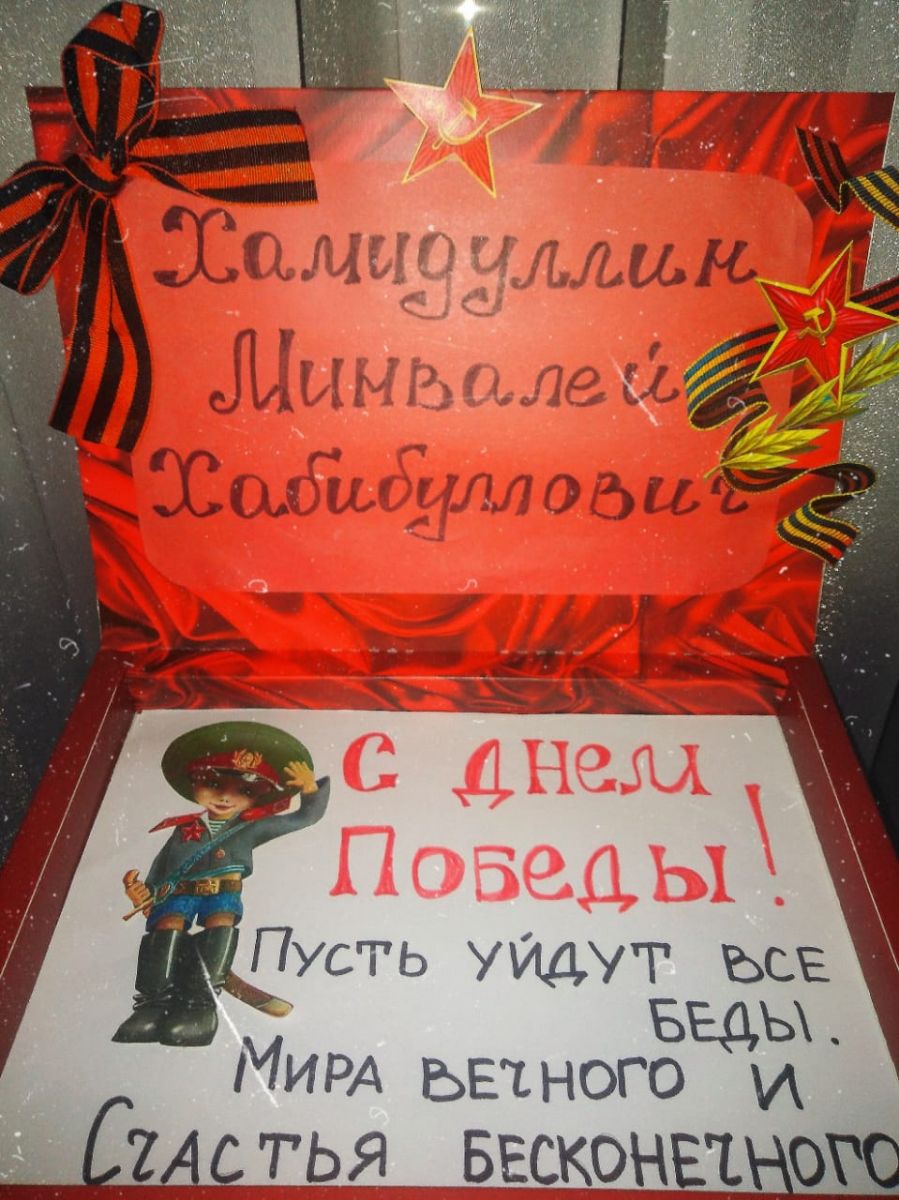 Хамидуллин
Минвалей
Хабибуллович
С днем
Победы!
Пусть уйдут все
беды.
Мира вечного и
Счастья бесконечного